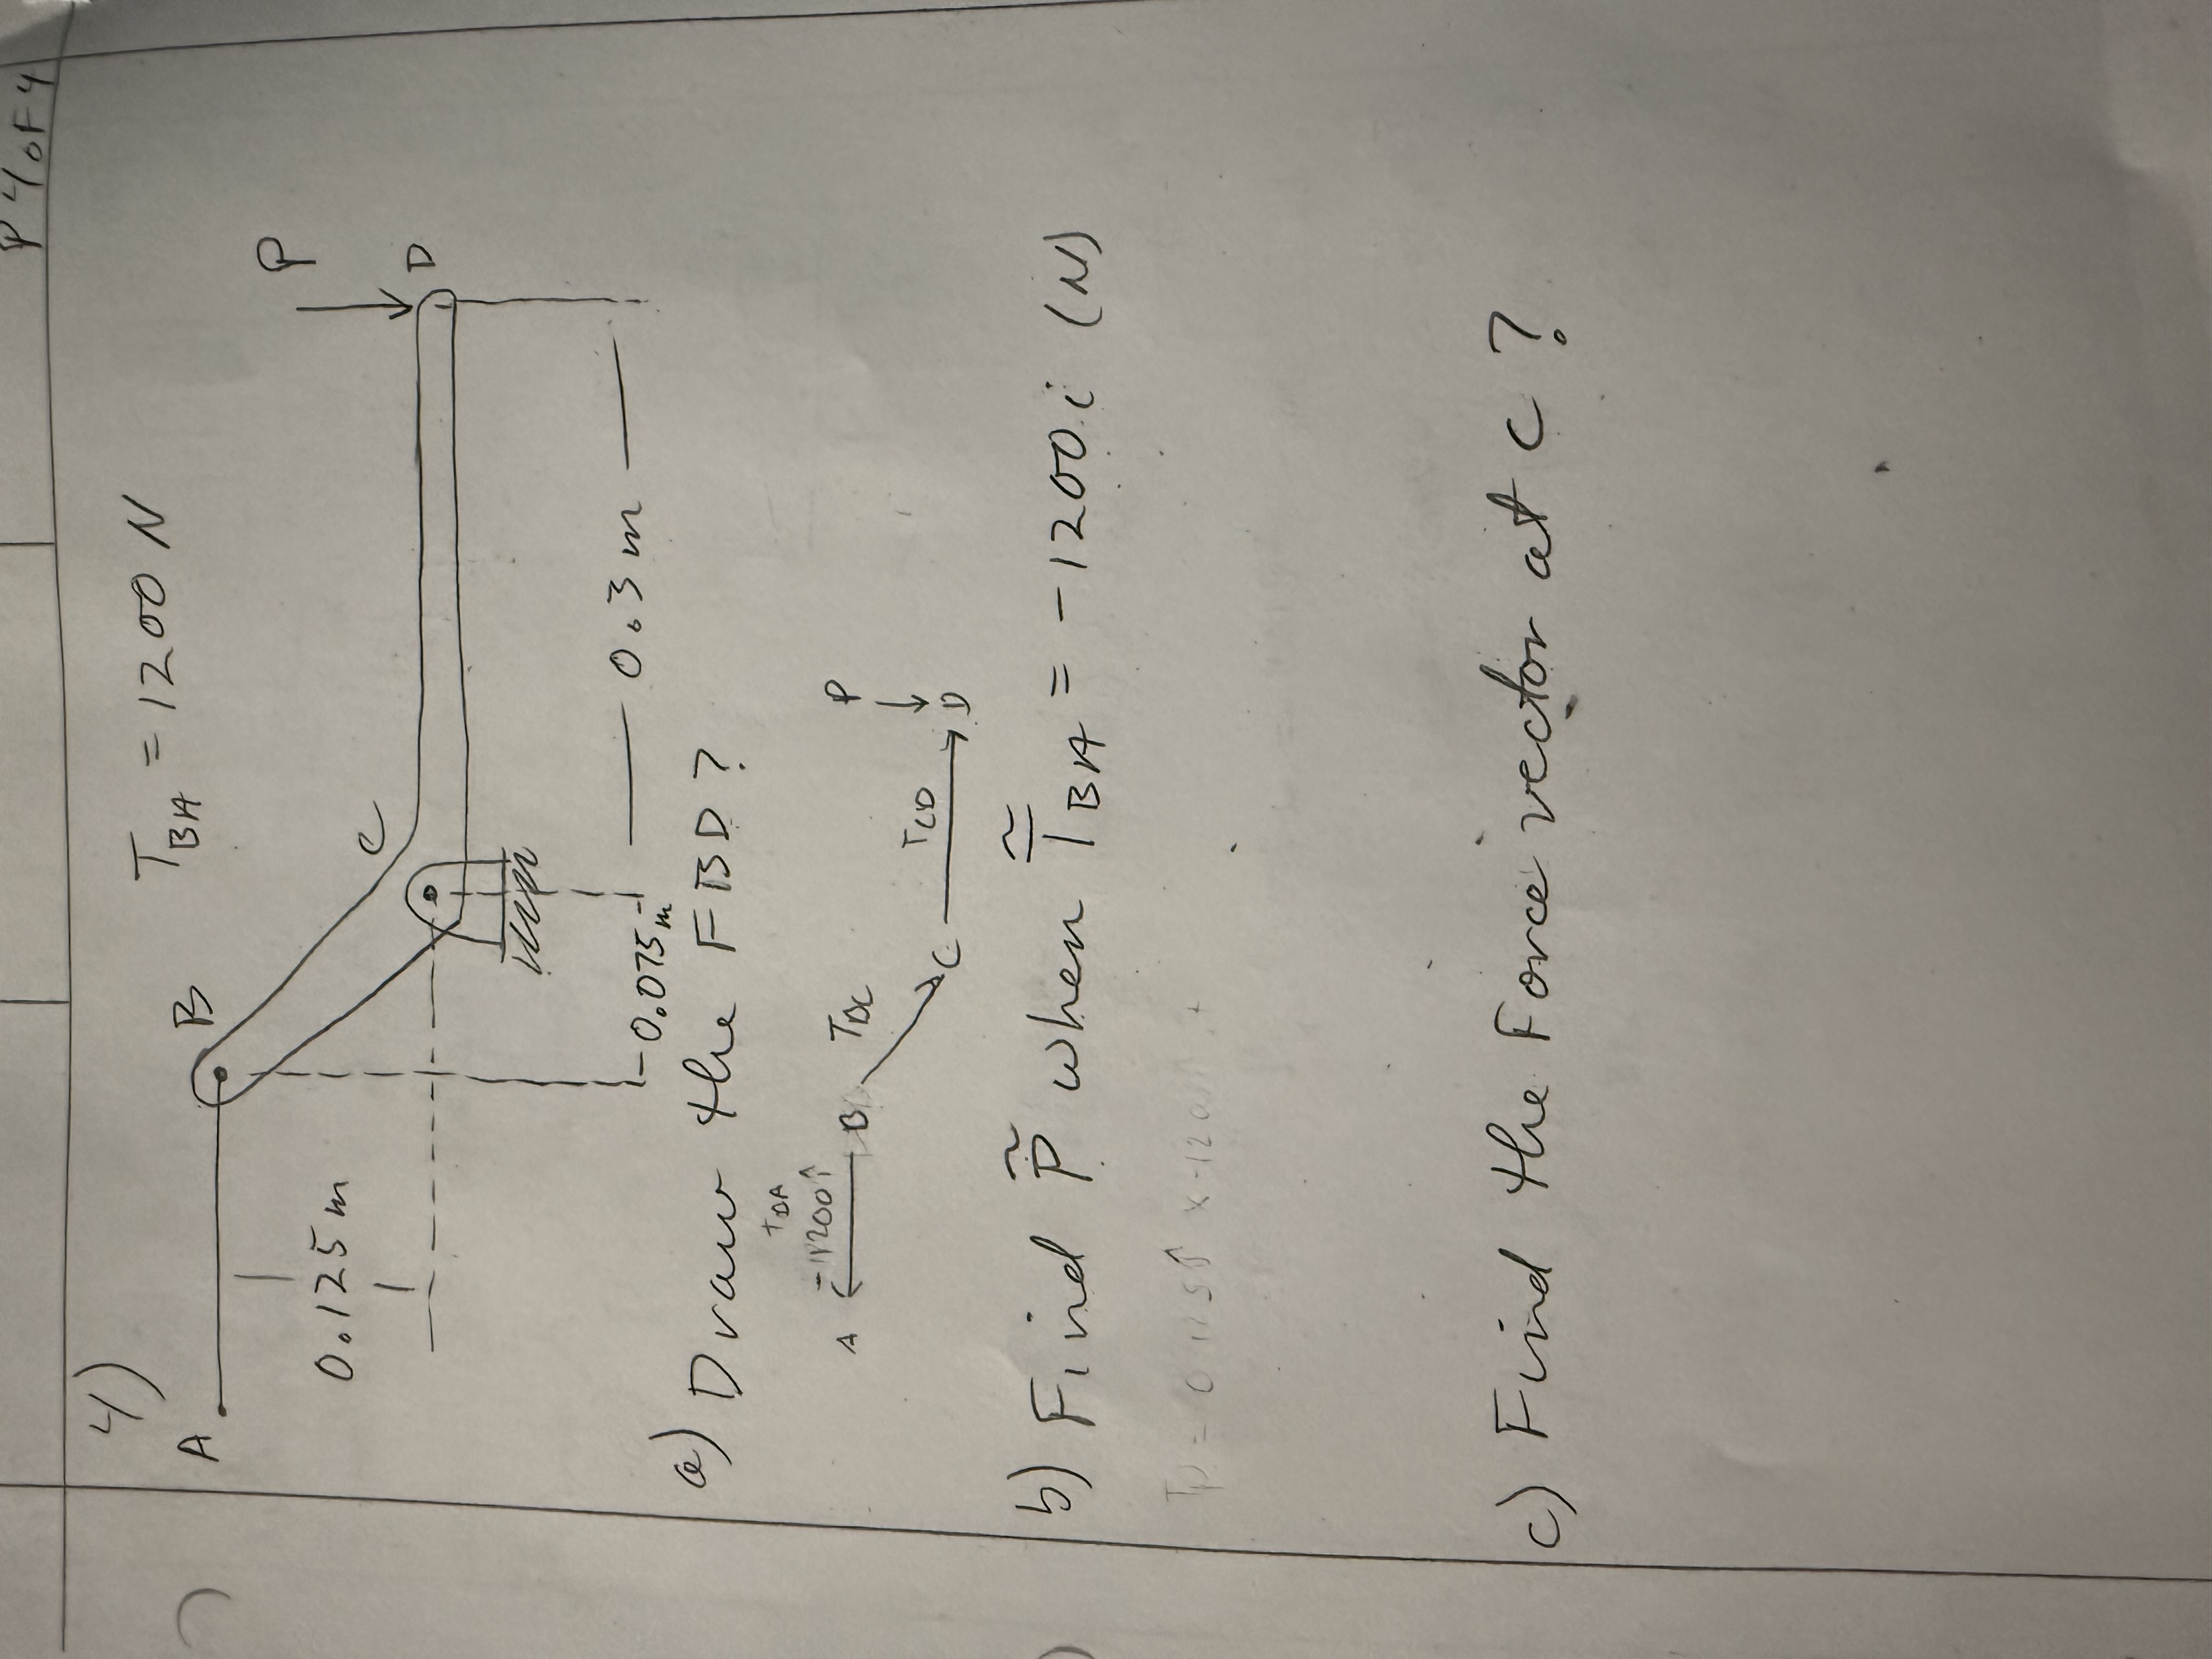 P 4 of 4
4)
T_BA = 1200 N
A
B
C
P
D
0.125 m
0.075 m
0.3 m
a) Draw the FBD?
A
T_BA
-1200 î
B
T_BC
C
T_CD
P
D
b) Find P̃ when T̃_BA = -1200 i (N)
c) Find the Force vector at C?